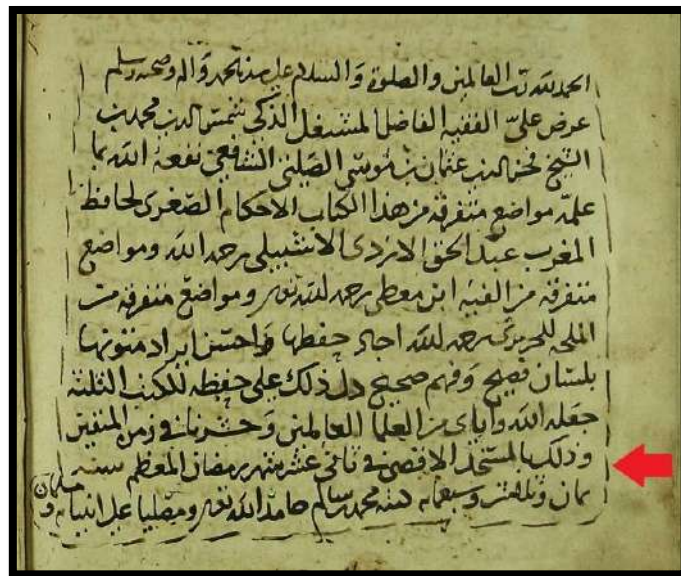 الحمد لله رب العالمين والصلوة والسلام على سيدنا محمد واله وصحبه وسلم
عرض علىّ الفقيه الفاضل المشتغل الذكي شمس الدين محمد بن
الشيخ فخر الدين عثمان بن موسى الشافعي نفعه الله بما
علمه مواضع متفرقة من هذا الكتاب الاحكام الصغرى لحافظ
المغرب عبد الحق الازدي الاشبيلي رحمه الله ومواضع
متفرقة من الفية ابن معطي رحمه الله تعالى ومواضع متفرقة من
الملحة للحريري رحمه الله اجاد حفظها واحسن ايراد متونها
بلسان فصيح وفهم صحيح دل ذلك على حفظه للكتب الثلثة
جعله الله واياي من العلما العاملين وحشرنا في زمرة المتقين
وذلك بالمسجد الاقصى في ثاني عشر شهر رمضان المعظم سنة
ثمان وثلاثين وسبعمائة محمد بن سالم حامدا لله تعالى ومصليا على انبيائه